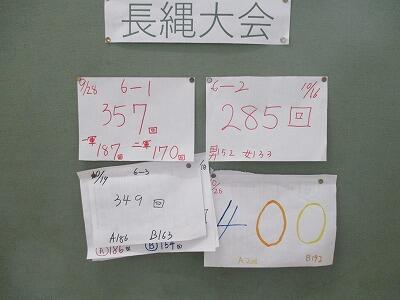 長縄大会
9/28 6-1
357回
一軍 二軍
187回 170回
6-2 10/16
285回
男152 女133
10/19 6-3
349回
A186 B163
(A)186回 (B)154回
400